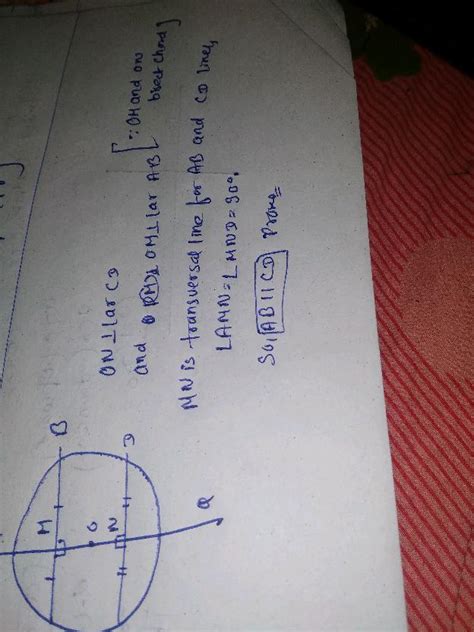 ON ⊥lar CD
and OM ⊥lar AB [∵ OM and ON
bisect chord]
MN is transversal line for AB and CD lines,
∠AMN = ∠MND = 90°.
So, AB || CD
M
B
O
N
D
Q